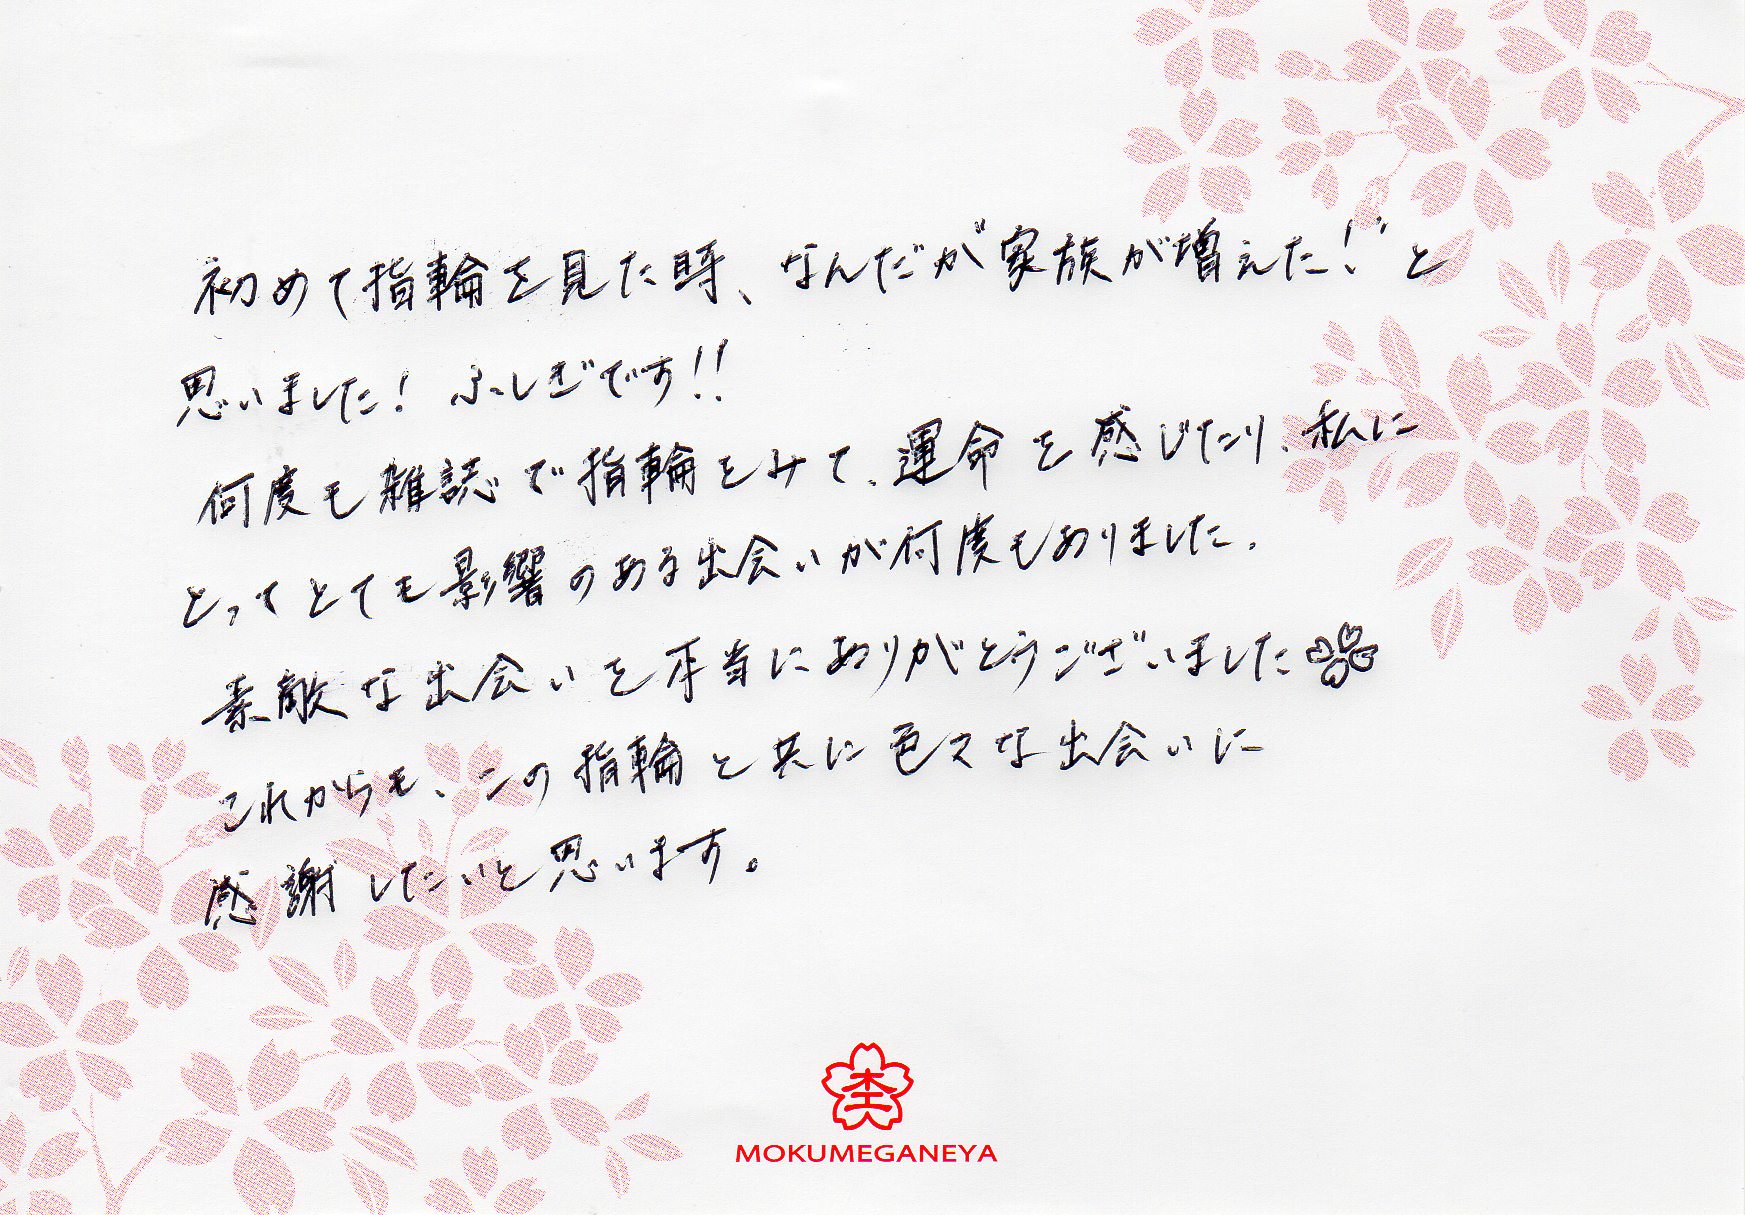 初めて指輪を見た時、なんだが“家族が増えた!”と
思いました! ふしぎです!!
何度も雑誌で指輪をみて、運命を感じたり、私に
とってとても影響のある出会いが何度もありました。
素敵な出会いを本当にありがとうございました
これからも、この指輪と共に色々な出会いに
感謝したいと思います。
MOKUMEGANEYA